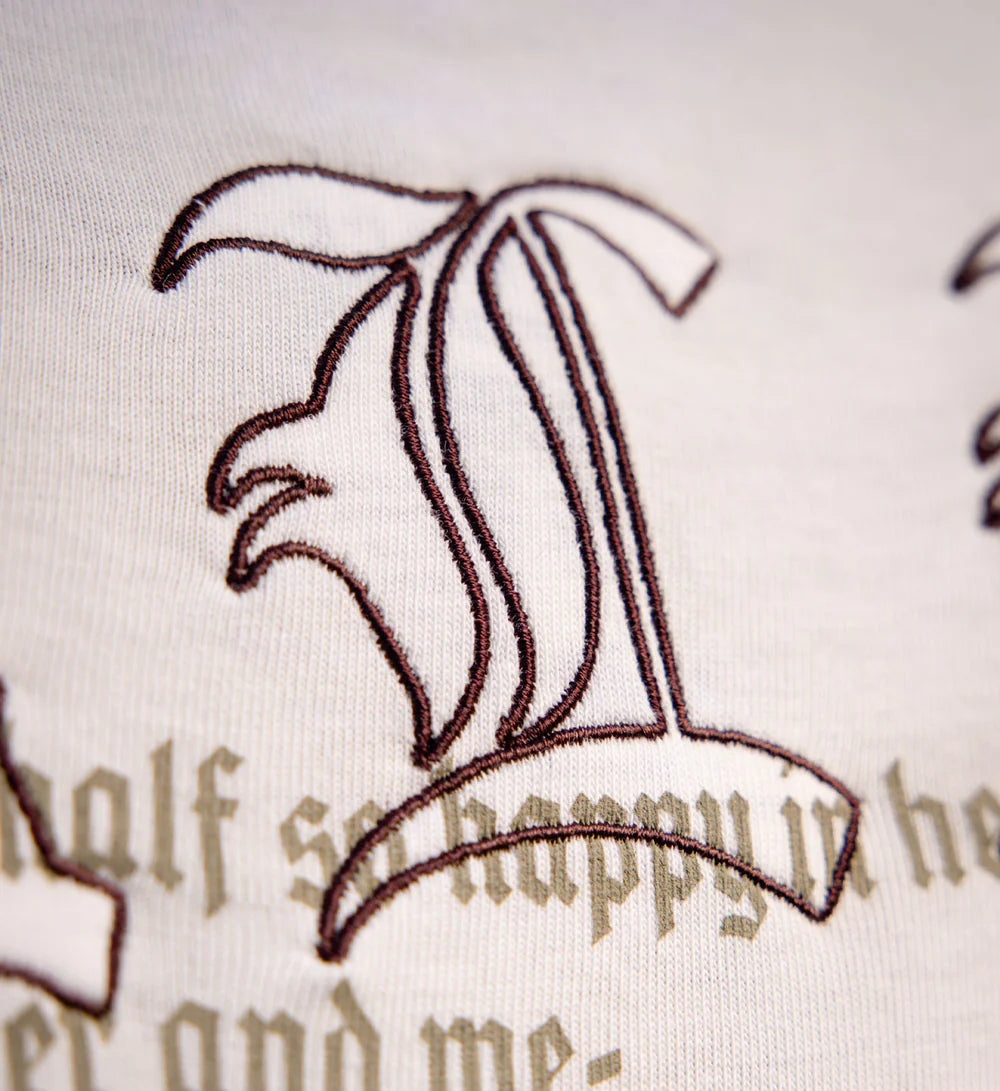 L
half so happy in he
er and me-